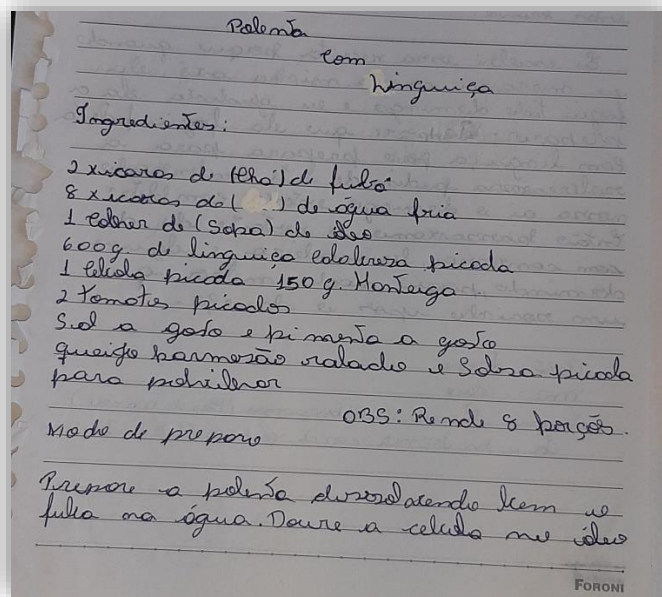 Polenta
com
Linguiça
Ingredientes:
2 xícaras de (chá) de fubá
8 xícaras de ( ) de água fria
1 colher de (sopa) de óleo
600g de linguiça calabreza picada
1 cebola picada 150 g. Manteiga
2 tomates picados
Sal a gosto e pimenta a gosto
queijo parmesão ralado e Salsa picada
para polvilhar
OBS: Rende 8 porções.
Modo de preparo
Prepare a polenta dissolvendo bem o
fubá na água. Doure a cebola no óleo
FORONI